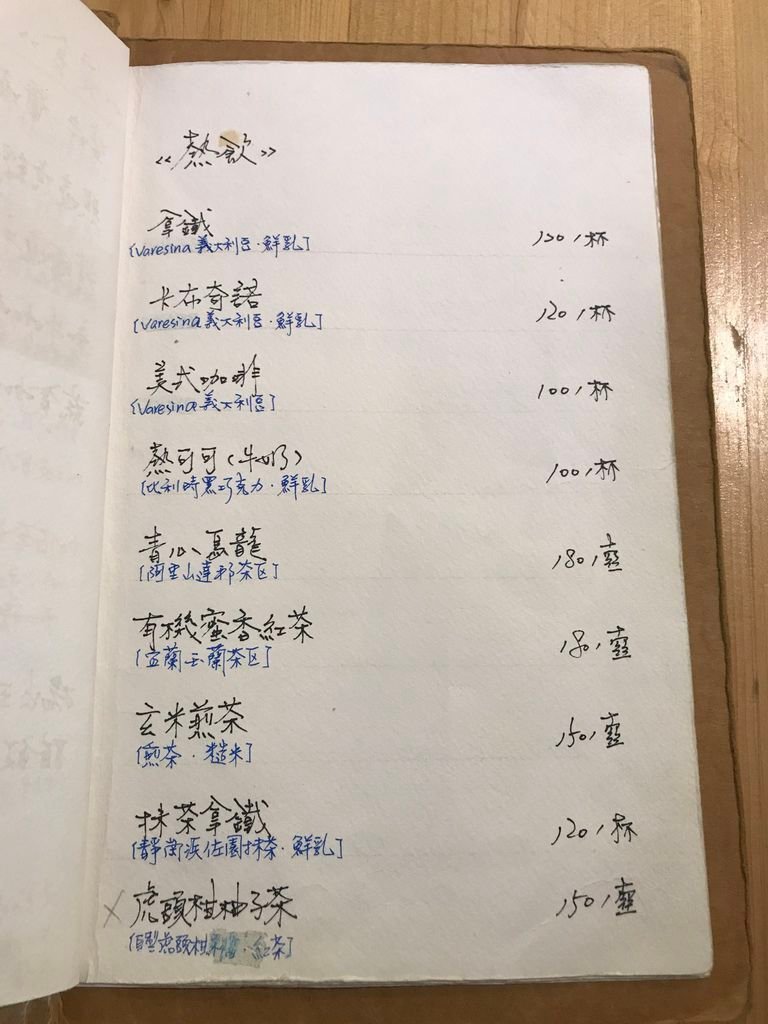 《熱飲》
拿鐵
[Varesina義大利豆·鮮乳]
120/杯
卡布奇諾
[Varesina義大利豆·鮮乳]
120/杯
美式咖啡
[Varesina義大利豆]
100/杯
熱可可(牛奶)
[比利時黑巧克力·鮮乳]
100/杯
青心烏龍
[阿里山達邦茶区]
180/壺
有機蜜香紅茶
[宜蘭玉蘭茶区]
180/壺
玄米煎茶
[煎茶·糙米]
150/壺
抹茶拿鐵
[靜岡浜佐園抹茶·鮮乳]
120/杯
X 虎頭柑柚子茶
[自製虎頭柑 ·紅茶]
150/壺